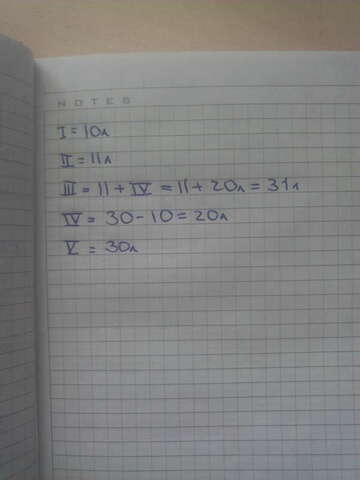 NOTES
I = 10л
II = 11л
III = 11 + IV = 11 + 20л = 31л
IV = 30 - 10 = 20л
V = 30л